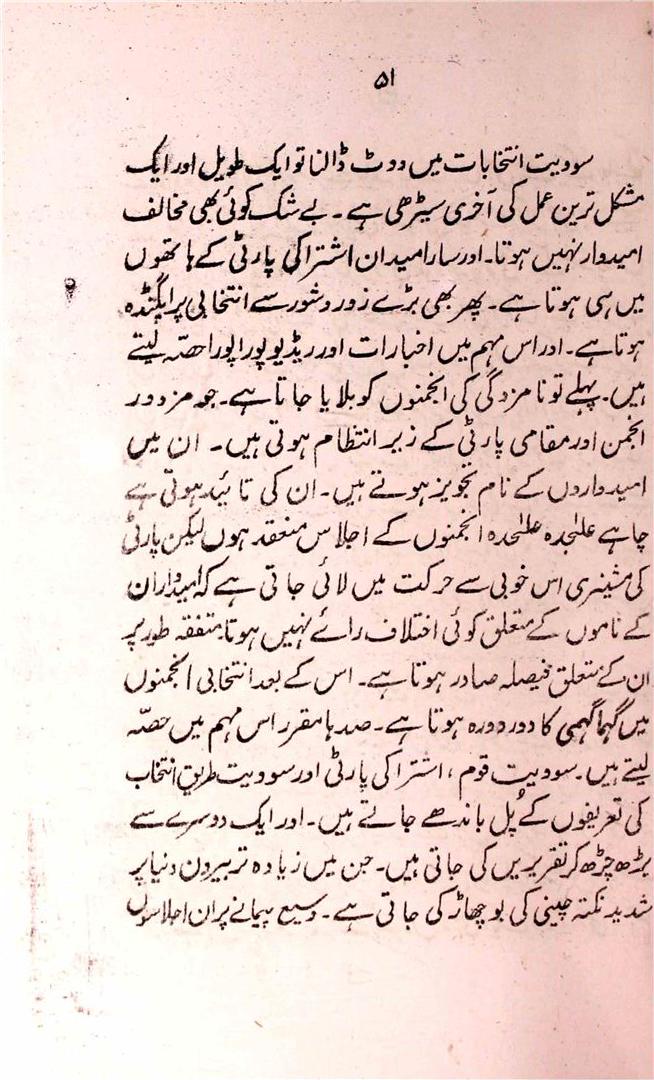 ۵۱
سوویت انتخابات میں ووٹ ڈالنا تو ایک طویل اور ایک
مشکل ترین عمل کی آخری سیڑھی ہے۔ بے شک کوئی بھی مخالف
امیدوار نہیں ہوتا۔ اور سارا میدان اشتراکی پارٹی کے ہاتھوں
میں ہی ہوتا ہے۔ پھر بھی بڑے زور و شور سے انتخابی پراپگنڈہ
ہوتا ہے۔ اور اس مہم میں اخبارات اور ریڈیو پورا پورا حصّہ لیتے
ہیں۔ پہلے تو نامزدگی کی انجمنوں کو بلایا جاتا ہے۔ جو مزدور
انجمن اور مقامی پارٹی کے زیر انتظام ہوتی ہیں۔ ان میں
امیدواروں کے نام تجویز ہوتے ہیں۔ ان کی تائید ہوتی ہے
چاہے علیٰحدہ علیٰحدہ انجمنوں کے اجلاس منعقد ہوں لیکن پارٹی
کی مشینری اس خوبی سے حرکت میں لائی جاتی ہے کہ امیدواران
کے ناموں کے متعلق کوئی اختلاف رائے نہیں ہوتا۔ متفقہ طور پر
ان کے متعلق فیصلہ صادر ہوتا ہے۔ اس کے بعد انتخابی انجمنوں
میں گہما گہمی کا دور دورہ ہوتا ہے۔ صدہا مقرر اس مہم میں حصّہ
لیتے ہیں۔ سوویت قوم، اشتراکی پارٹی اور سوویت طریق انتخاب
کی تعریفوں کے پُل باندھے جاتے ہیں۔ اور ایک دوسرے سے
بڑھ چڑھ کر تقریریں کی جاتی ہیں۔ جن میں زیادہ تر بیرون دنیا پر
شدید نکتہ چینی کی بوچھاڑ کی جاتی ہے۔ وسیع پیمانے پر ان اجلاسوں